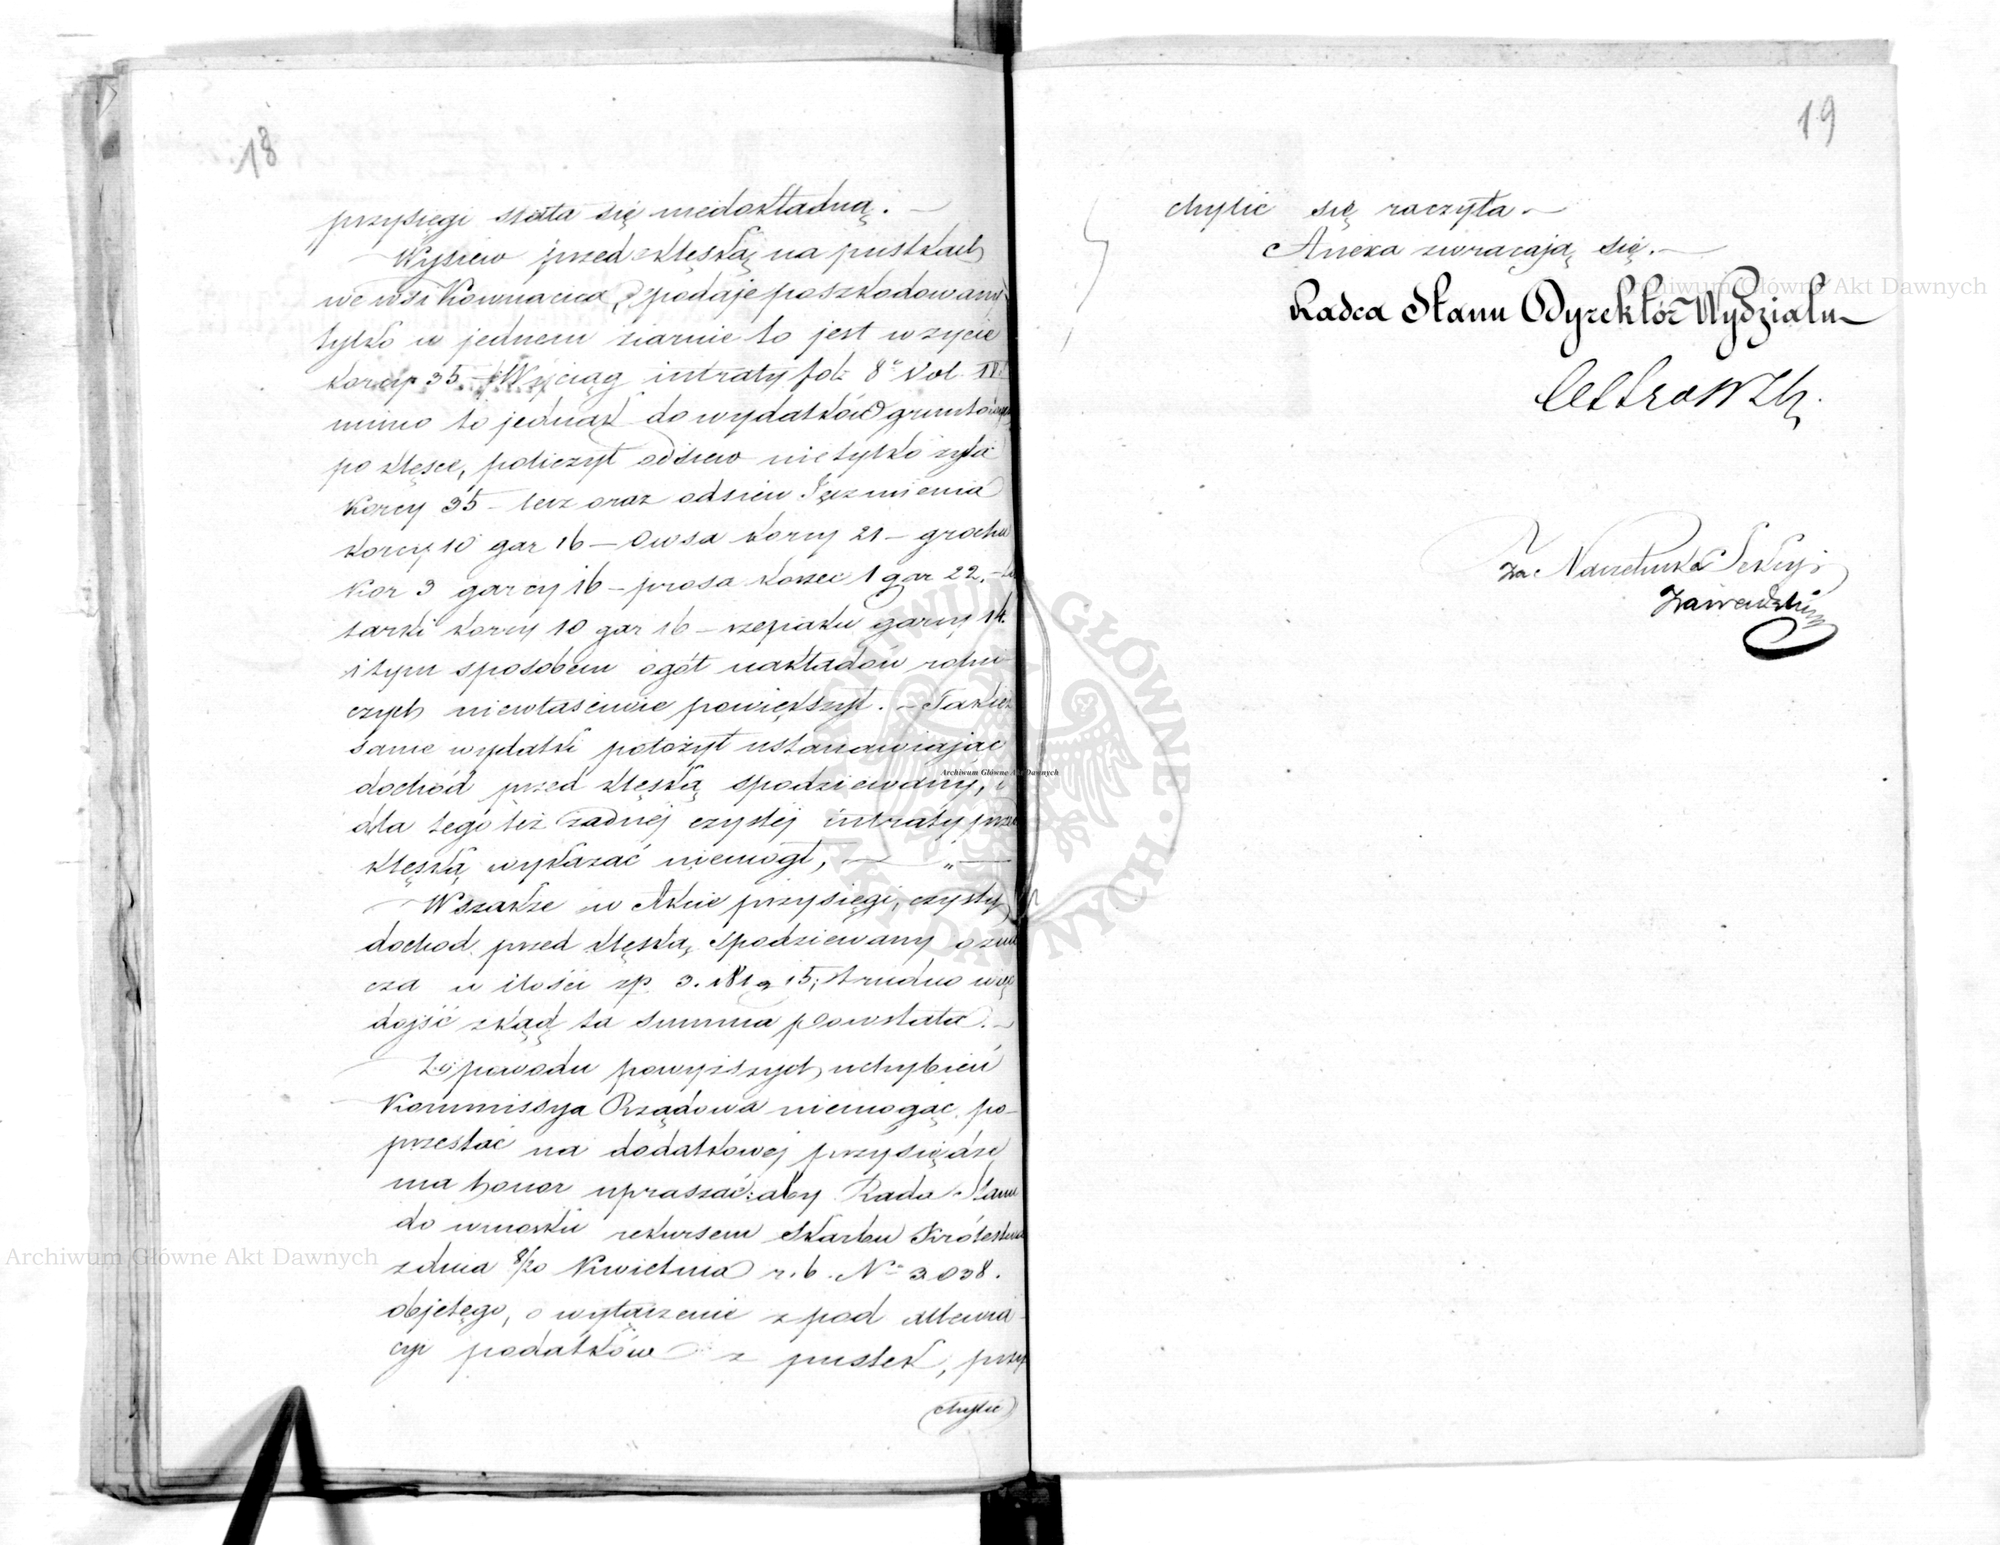 18
przysięgi stała się niedokładną. —
Wysiew przed klęską na pustkach
we wsi Kownacica, podaje poszkodowany
tylko w jednem ziarnie to jest w życie
korcy 35 – Wyciąg intraty fol: 8º Vol. II.
mimo to jednak do wydatków gruntowych
po klęsce, policzył odsiew nie tylko żyta
korcy 35 – lecz oraz odsiew Jęczmienia
korcy 10 gar 16 – Owsa korcy 21 – grochu
kor 3 garcy 16 – prosa korzec 1 gar 22. – ta
tarki korcy 10 gar 16 – rzepaku garcy 14.
i tym sposobem ogół nakładów rolni-
czych niewłaściwie powiększył. – Takież
same wydatki położył ustanawiając
dochód przed klęską spodziewany, i
dla tego też żadnej czystej intraty przed
klęską wykazać niemogł, — „ —
Wszakże w Akcie przysięgi, czysty
dochod przed klęską spodziewany ozna
cza w ilości zp. 3. 181 g 15; trudno więc
dojść zkąd ta summa powstała. –
Z powodu powyższych uchybień
Kommissya Rządowa niemogąc po-
przestać na dodatkowej przysiędze
ma honor upraszać: aby Rada Stanu
do wniosku rekursem Skarbu Królestwa
z dnia 8/20 Kwietnia r. b. Nº 3038.
objętego, o wyłączenie z pod allewia
cyi podatków z pustek, przy
chylić
19
chylić się raczyła. —
Anexa zwracają się. —
Radca Stanu Dyrektór Wydziału
Za Naczelnika Sekcyi
Zawadzki
Archiwum Główne Akt Dawnych
Archiwum Główne Akt Dawnych
Archiwum Główne Akt Dawnych
ARCHIWUM GŁÓWNE AKT DAWNYCH